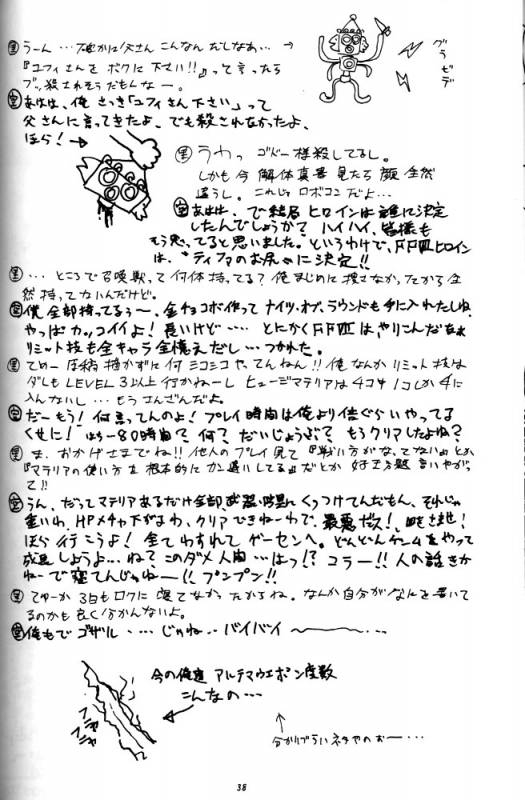 里 うーん…確かに父さんこんなんだしなあ… →
『ユフィさんをボクに下さい!!』って言ったら
ブッ殺されそうだもんなー。
グラビデ
宝 あはは、俺さっき「ユフィさん下さい」って
父さんに言ってきたよ、でも殺されなかったよ、
ほら!
里 うわっ ゴドー様殺してるし。
しかも今 解体真書 見たら 顔 全然
違うし。これじゃロボコンだよ…
宝 あはは、で結局 ヒロインは誰に決定
したんでしょうか? ハイハイ、皆様も
もう思ってると思いました。というわけで、FFⅦヒロイン
は、"ティファのお尻"に決定!!
里 …ところで召喚獣って何体持ってる?俺まじめに捜さなかったから全
然持ってないんだけど。
宝 僕、全部持ってるぅ〜、金チョコボ作ってナイツ・オブ・ラウンドも手に入れたしね、
やっぱカッコイイよ!長いけど…… とにかくFFⅦは、やりこんだ
リミット技も全キャラ全憶えだし…つかれた。
里 てめー 原稿描かずに何ニコニコやってんねん!!俺なんかリミット技は
ダレも LEVEL 3以上行かねーし ヒュージマテリアは4コ中1コしか手に
入んないし…もうさんざんだよ。
宝 だーもう!何言ってんのよ!プレイ時間は俺より倍ぐらいやってる
くせに!はら〜80時間?何?だいじょうぶ?もうクリアしたよね?
里 ま、おかげさまでね!!他人のプレイ見て『戦い方がなってない』とか
『マテリアの使い方を根本的にカン違いしてる』だとか 好き放題言いやがっ
て!!
宝 うん、だってマテリアあるだけ全部武器・防具にくっつけてんだもん、それじゃ
重いわ、HPメチャ下がるわ、クリアできねーわで、最悪だス!
ほら行こうよ!全てわすれてゲーセンへ。どんどんゲームをやって
成長しようよ…ね?このダメ人間…はっ!?コラー!!人の話きか
ねーで寝てんじゃねー!!プンプン!!
里 てゆーか 3日もロクに寝てなかったからね。なんか自分がなんて書いて
るのかも良く分かんないよ。
宝 俺もでゴザル……じゃね‥バイバイ〜
今の俺達 アルテマウエポン度数
こんなの…
フニャフニャ
分かりづらいネタやのおー…
38